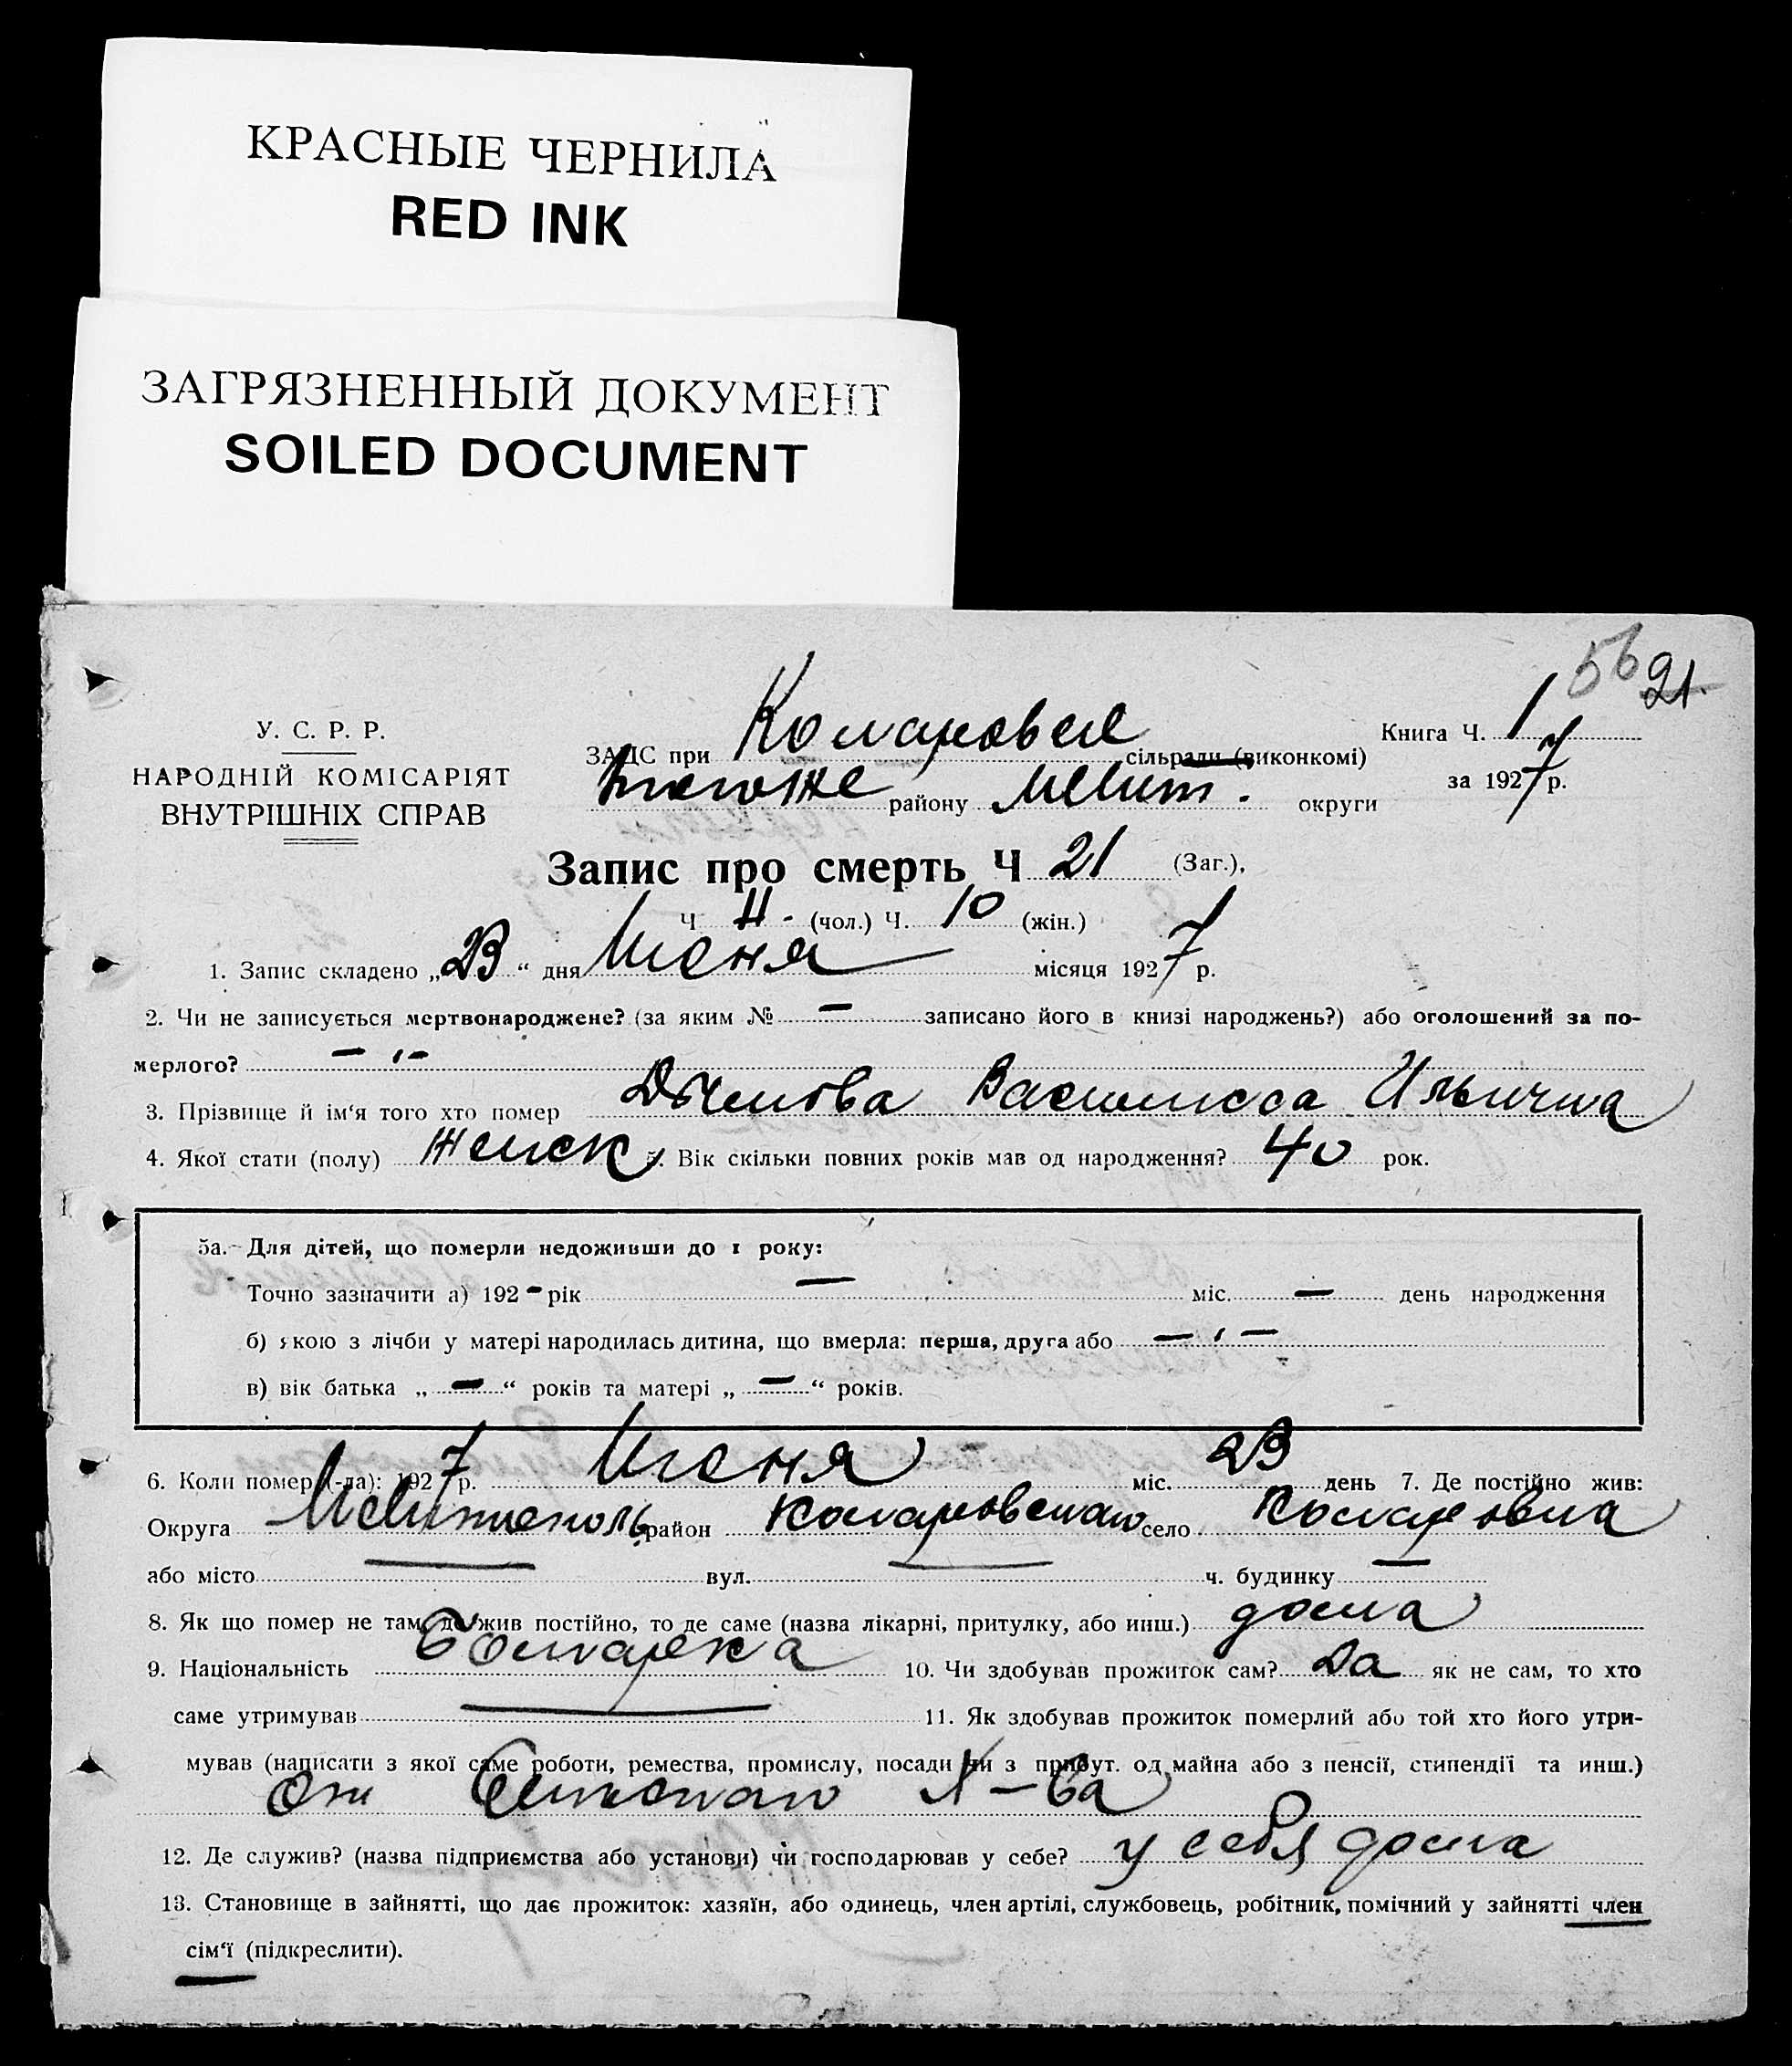 КРАСНЫЕ ЧЕРНИЛА
RED INK
ЗАГРЯЗНЕННЫЙ ДОКУМЕНТ
SOILED DOCUMENT
56 21.
У. С. Р. Р.
НАРОДНІЙ КОМІСАРІЯТ
ВНУТРІШНІХ СПРАВ
ЗАГС при сільради (виконкомі)
Книга Ч. 1
тогоже району Мелит. округи
за 1927 р.
Запис про смерть Ч 21 (Заг.),
Ч 11 - (чол.) Ч. 10 (жін.)
1. Запис складено „23“ дня Июня місяця 1927 р.
2. Чи не записується мертвонароджене? (за яким № — записано його в книзі народжень?) або оголошений за по-
мерлого? — „ —
3. Прізвище й ім'я того хто помер Васишисса Ильична
4. Якої стати (полу) Женск 5. Вік скільки повних років мав од народження? 40 рок.
5а. Для дітей, що померли недоживши до 1 року:
Точно зазначити а) 192 - рік — міс. — день народження
б) якою з лічби у матері народилась дитина, що вмерла: перша, друга або — „ —
в) вік батька „ — “ років та матері „ — “ років.
6. Коли помер (-ла): 1927 р. Июня міс. 23 день 7. Де постійно жив:
Округа Мелитополь район село
або місто — вул. — ч. будинку —
8. Як що помер не там, де жив постійно, то де саме (назва лікарні, притулку, або инш.) дома
9. Національність Болгарка 10. Чи здобував прожиток сам? Да як не сам, то хто
саме утримував — 11. Як здобував прожиток померлий або той хто його утри-
мував (написати з якої саме роботи, ремества, промислу, посади чи з прибут. од майна або з пенсії, стипендії та инш.)
От Сельского Х-ва
12. Де служив? (назва підприємства або установи) чи господарював у себе? у себя дома
13. Становище в зайнятті, що дає прожиток: хазяїн, або одинець, член артілі, службовець, робітник, помічний у зайнятті член
сім'ї (підкреслити).